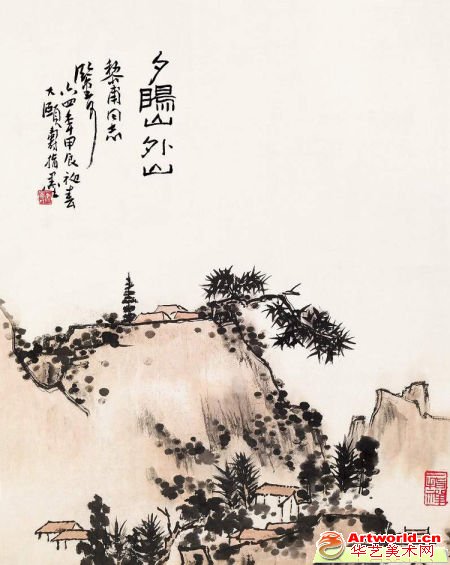 夕暘山外山
黎甫同志
六四年甲辰初春
大頤壽指墨
Artworld.cn
华艺美术网